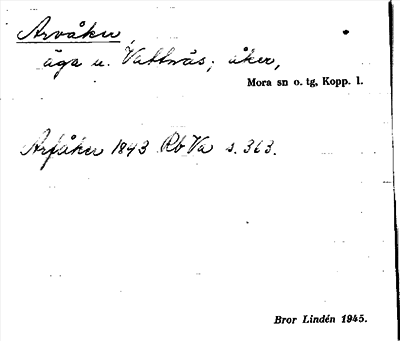 Arvåker,
äga u. Vattnäs; åker,
Mora sn o. tg, Kopp. l.
Arfåker 1843 Rb Va s. 363.
Bror Lindén 1945.